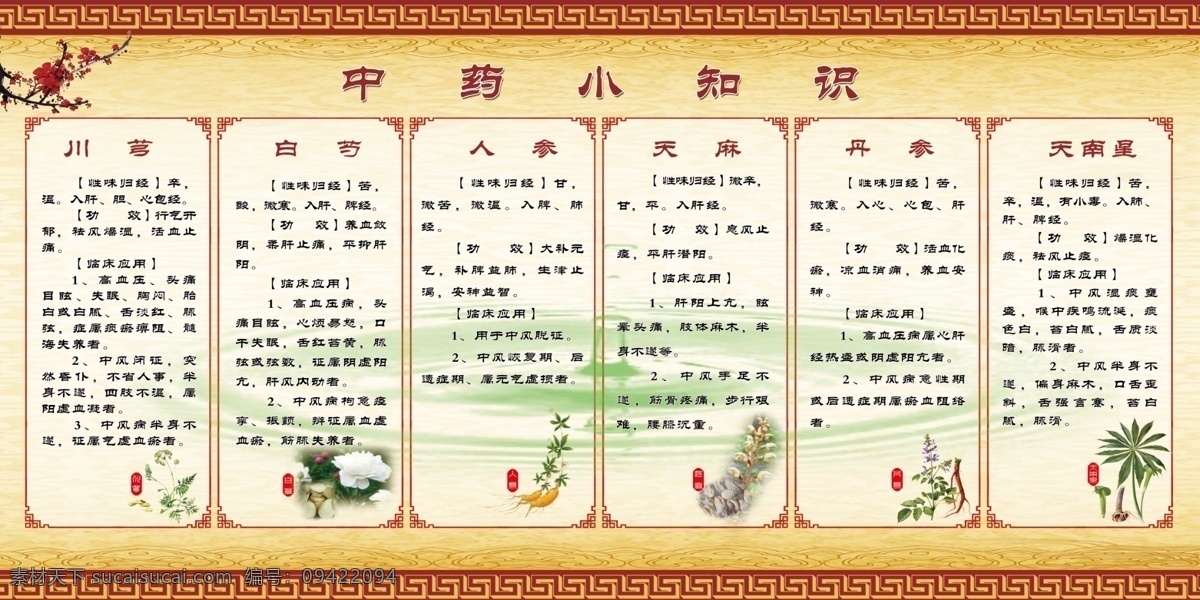 中药小知识
川芎
【性味归经】辛，
温。入肝、胆、心包经。
【功　效】行气开
郁，祛风燥湿，活血止
痛。
【临床应用】
1、高血压、头痛
目眩、失眠、胸闷、胎
白或白腻、舌淡红、脉
弦，症属痰瘀痹阻、髓
海失养者。
2、中风闭证，突
然昏仆，不省人事，半
身不遂，四肢不温，属
阳虚血凝者。
3、中风病半身不
遂，证属气虚血瘀者。
川芎
白芍
【性味归经】苦，
酸，微寒。入肝、脾经。
【功　效】养血敛
阴，柔肝止痛，平抑肝
阳。
【临床应用】
1、高血压病，头
痛目眩，心烦易怒，口
干失眠，舌红苔黄，脉
弦或弦数，证属阴虚阳
亢，肝风内动者。
2、中风病拘急痉
挛、振颤，辨证属血虚
血瘀，筋脉失养者。
白芍
人参
【性味归经】甘，
微苦，微温。入脾、肺
经。
【功　效】大补元
气，补脾益肺，生津止
渴，安神益智。
【临床应用】
1、用于中风脱证。
2、中风恢复期、后
遗症期、属元气虚损者。
人参
天麻
【性味归经】微辛，
甘，平。入肝经。
【功　效】息风止
痉，平肝潜阳。
【临床应用】
1、肝阳上亢，眩
晕头痛，肢体麻木，半
身不遂等。
2、中风手足不
遂，筋骨疼痛，步行艰
难，腰膝沉重。
丹参
【性味归经】苦，
微寒。入心、心包、肝
经。
【功　效】活血化
瘀，凉血消痛，养血安
神。
【临床应用】
1、高血压病属心肝
经热盛或阴虚阳亢者。
2、中风病急性期
或后遗症期属瘀血阻络
者。
丹参
天南星
【性味归经】苦，
辛，温，有小毒。入肺、
肝、脾经。
【功　效】燥湿化
痰，祛风止痉。
【临床应用】
1、中风湿痰壅
盛，喉中痰鸣流涎，痰
色白，苔白腻，舌质淡
暗，脉滑者。
2、中风半身不
遂，偏身麻木，口舌歪
斜，舌强言塞，苔白
腻，脉滑。
天南星
素材天下 sucaisucai.com 编号：09422094